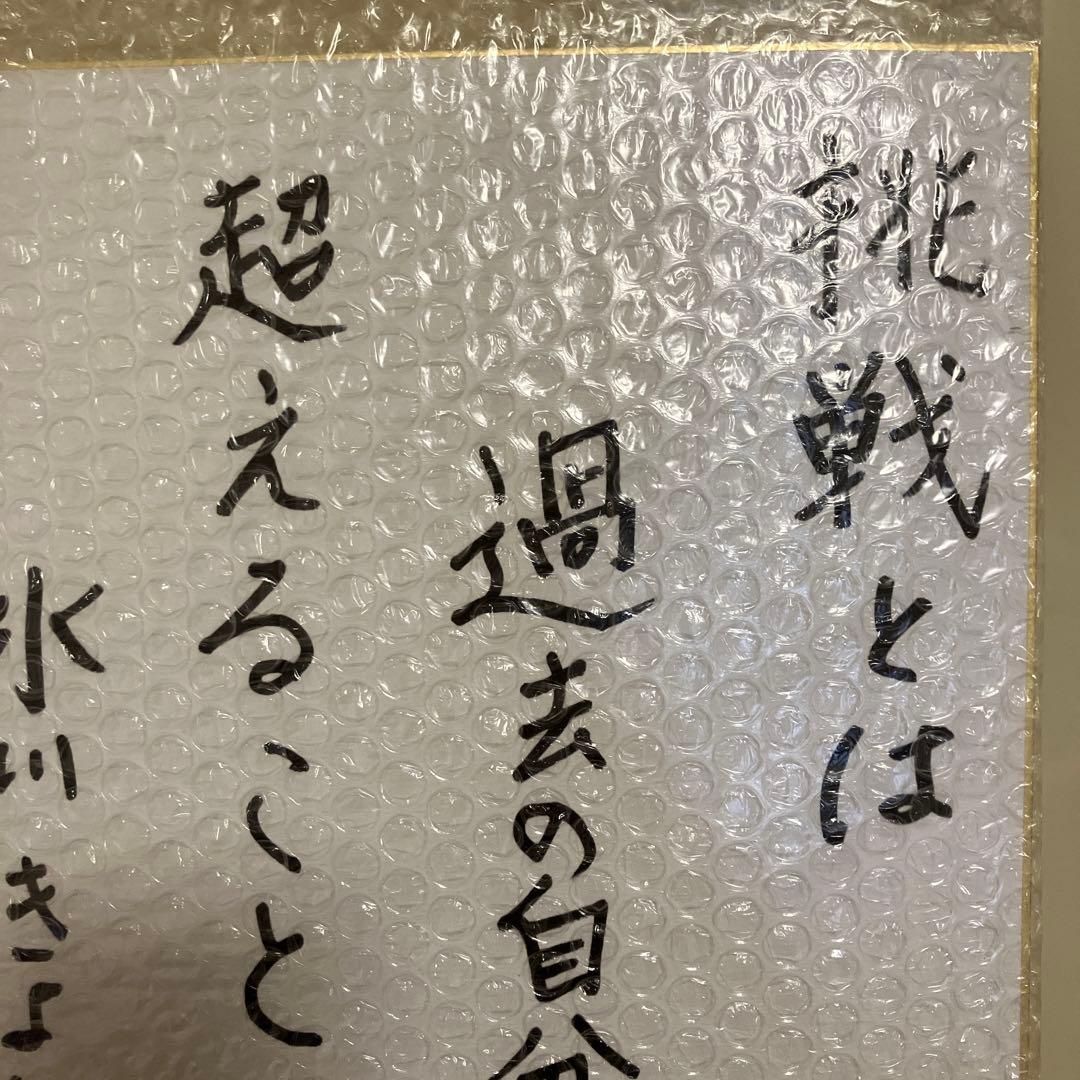 挑戦とは
過去の自分
超えること
氷川きよ